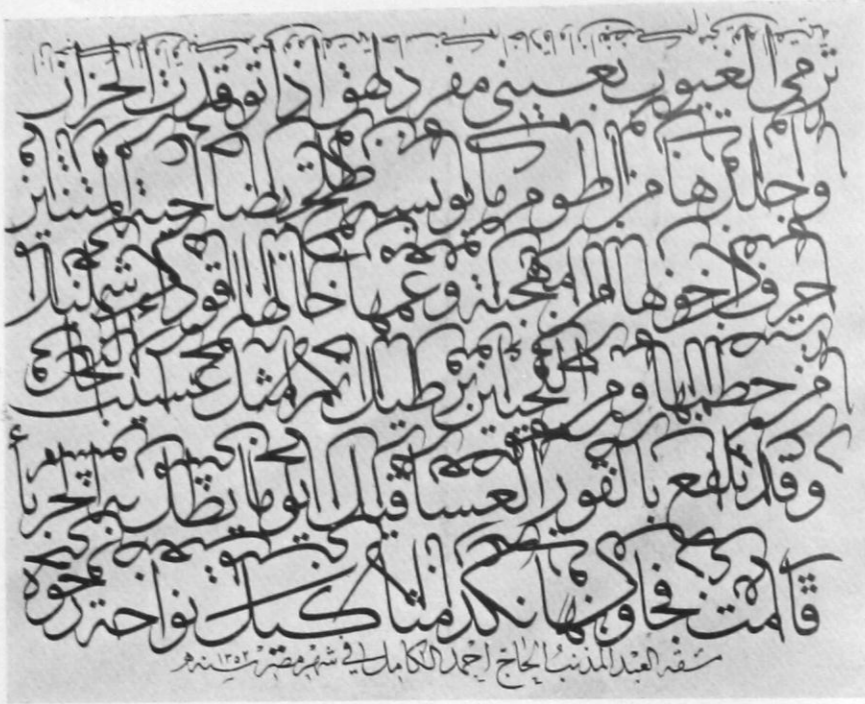 ترمي الغيوب بعيني مفرد لهق اذا توقدت الحزان
وجلدها من اطوم ما يؤيسه طلح بضاحية المتنين
حرف اخوها ابوها من مهجنة وعمها خالها قوداء شمليل
من خطمها ومن اللحيين برطيل تمر مثل عسيب النخل
وقد تلفع بالقور العساقيل يوما يظل به الحرباء
قامت فجاوبها نكد مثاكيل نواحة رخوة
مشقه العبد المذنب الحاج احمد الكامل في شهر سنه ١٣٥٢